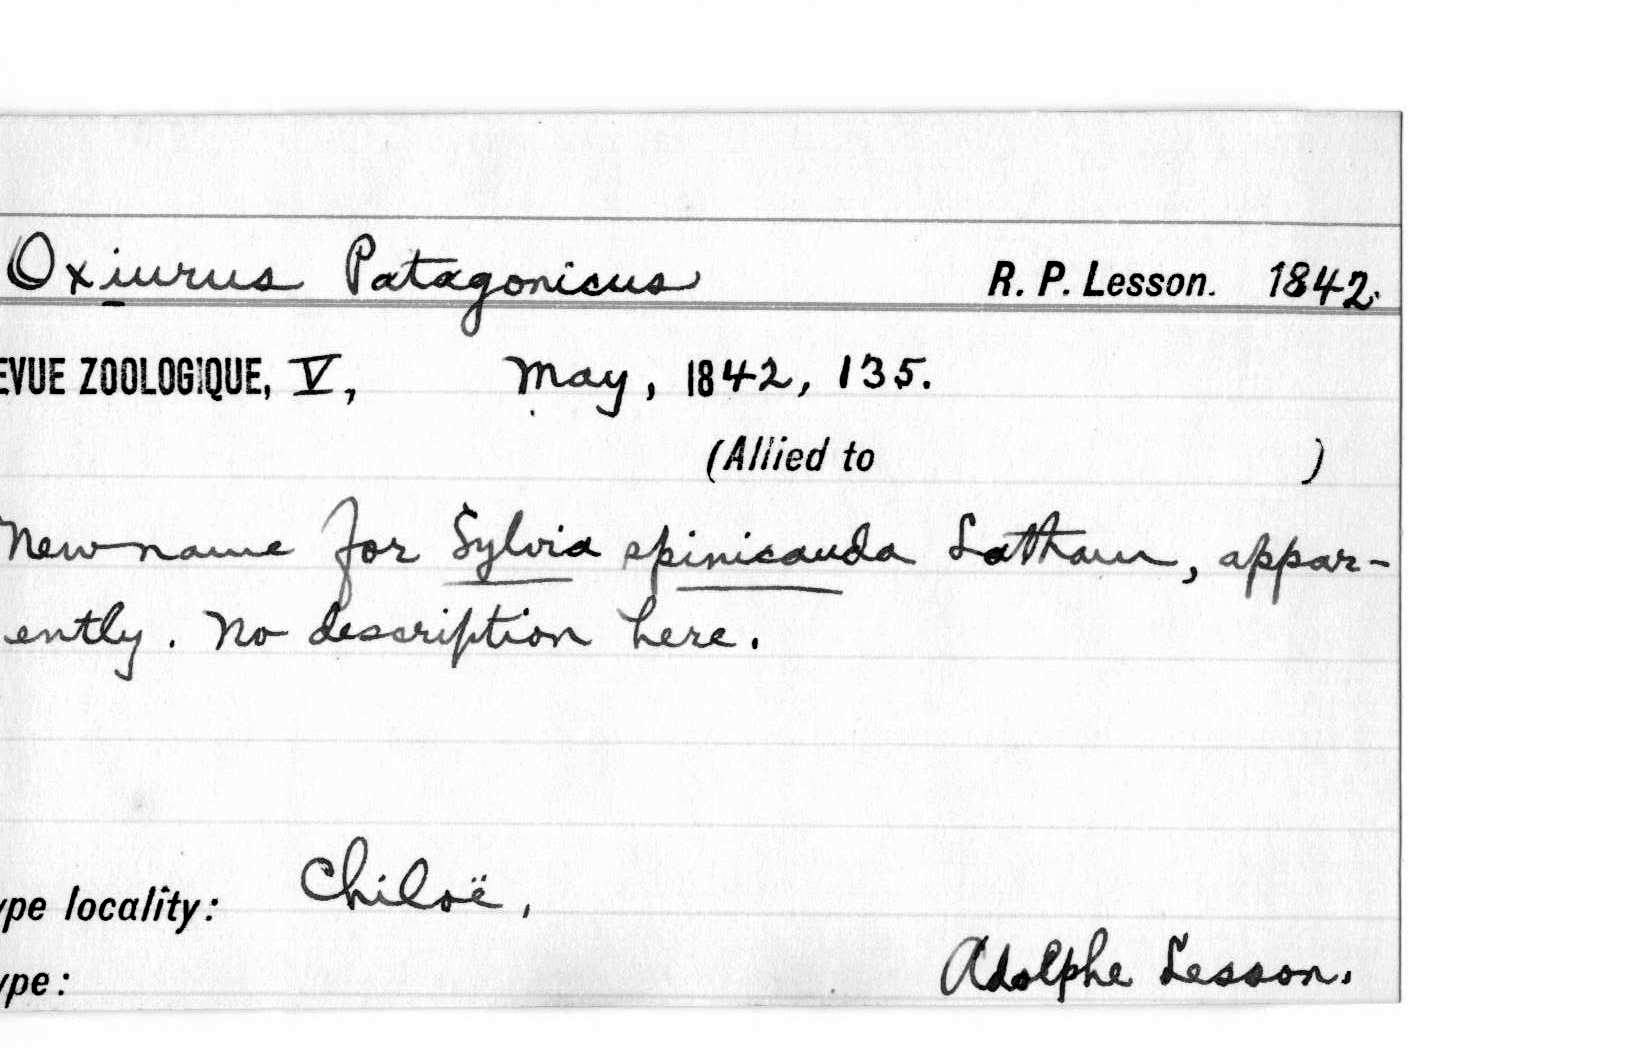 Oxiurus Patagonicus R. P. Lesson. 1842.
EVUE ZOOLOGIQUE, V, May, 1842, 135.
(Allied to )
New name for Sylvia spinicauda Latham, appar-
ently. No description here.
ype locality: Chiloë,
Adolphe Lesson.
ype: